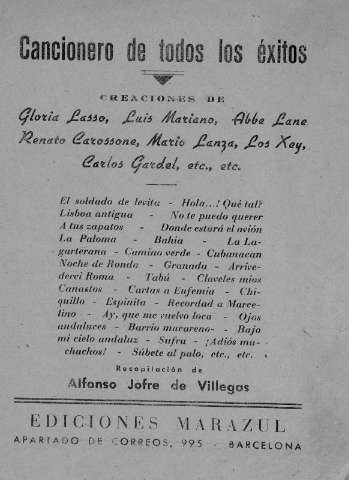 Cancionero de todos los éxitos
CREACIONES DE
Gloria Lasso, Luis Mariano, Abbe Lane
Renato Carossone, Mario Lanza, Los Xey,
Carlos Gardel, etc., etc.
El soldado de levita - Hola...! Qué tal?
Lisboa antigua - No te puedo querer
A tus zapatos - Donde estará el avión
La Paloma - Bahia - La La-
garterana - Camino verde - Cubanacan
Noche de Ronda - Granada - Arrive-
derci Roma - Tabú - Claveles mios
Canastos - Cartas a Eufemia - Chi-
quillo - Espinita - Recordad a Marce-
lino - Ay, que me vuelvo loca - Ojos
andaluces - Barrio macareno - Bajo
mi cielo andaluz - Sufra - ¡Adiós mu-
chachos! - Súbete al palo, etc., etc.
Recopilación de
Alfonso Jofre de Villegas
EDICIONES MARAZUL
APARTADO DE CORREOS, 995 - BARCELONA